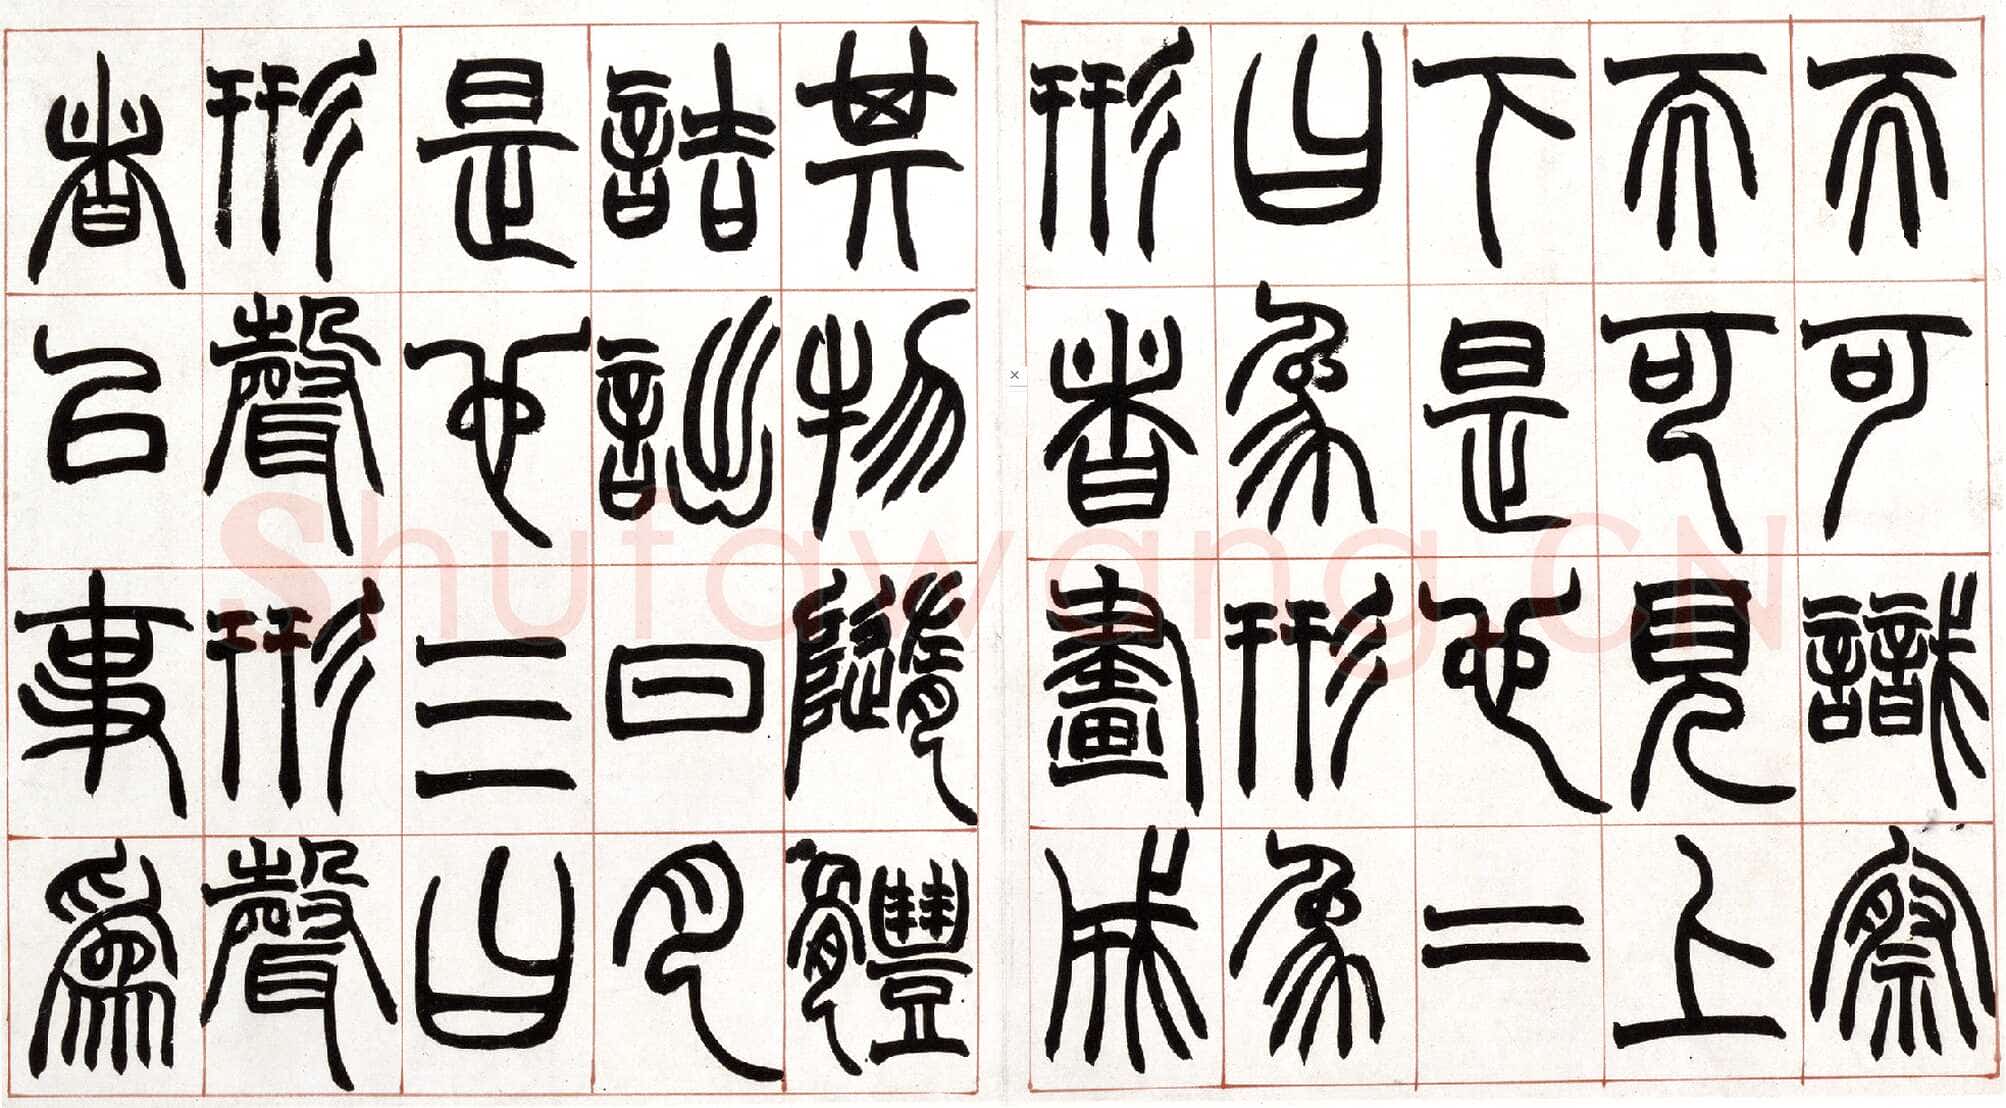 而可識察
而可見上
下是也二
曰象形象
形者畫成
其物隨體
詰詘日月
是也三曰
形聲形聲
者以事爲
Shufawang.CN